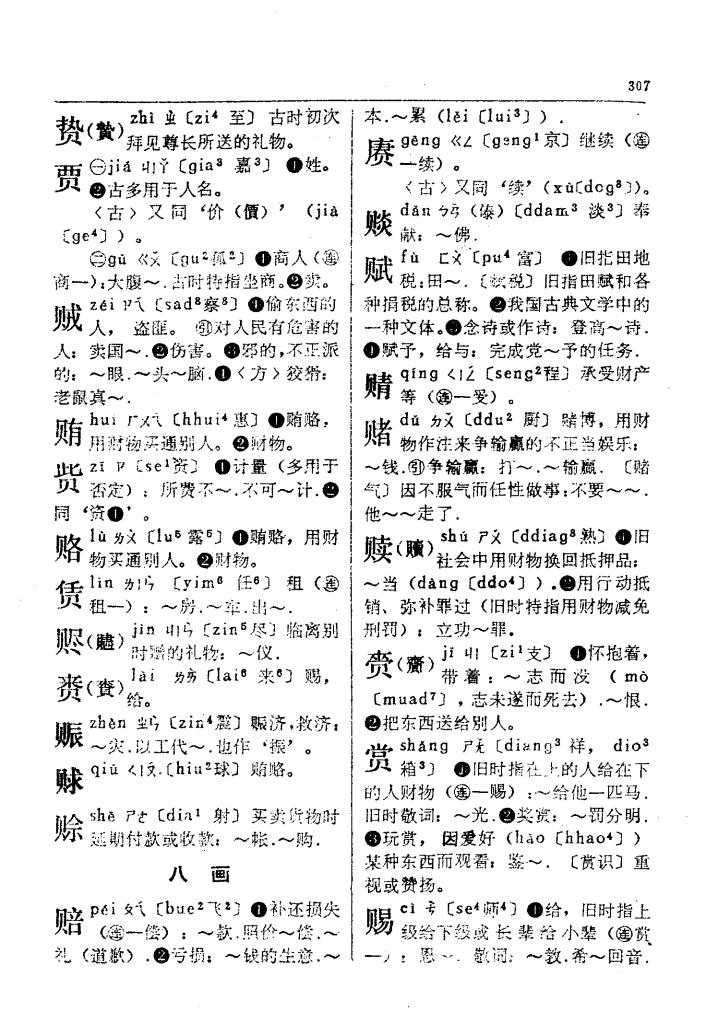 307
贽(贄) zhì ㄓ〔zi⁴ 至〕 古时初次
拜见尊长所送的礼物。
贾 ㊀jiǎ ㄐㄧㄚˇ〔gia³ 嘉³〕 ❶姓。
❷古多用于人名。
〈古〉又同‘价(價)’(jià
〔ge⁴〕)。
㊁gǔ ㄍㄨˇ〔gu² 孤²〕❶商人(㊣
商一):大腹～.古时特指坐商。❷卖。
贼 zéi ㄗㄟˊ〔sad⁸察⁸〕❶偷东西的
人, 盗匪。㊀对人民有危害的
人: 卖国～.❷伤害。❸邪的,不正派
的: ～眼.～头～脑.❹〈方〉狡猾:
老鼠真～.
贿 huì ㄏㄨㄟˋ〔hhui⁴惠〕❶贿赂,
用财物买通别人。❷财物。
赀 zī ㄗ〔se¹资〕 ❶计量(多用于
否定): 所费不～.不可～计.❷
同‘资❶’。
赂 lù ㄌㄨˋ〔lu⁵ 露⁵〕❶贿赂, 用财
物买通别人。❷财物。
赁 lìn ㄌㄧㄣˋ 〔yim⁶ 任⁶〕 租(㊣
租一): ～房.～车.出～.
赆(贐) jìn ㄐㄧㄣˋ〔zin⁵尽〕临离别
时赠的礼物: ～仪.
赉(賚) lài ㄌㄞˋ〔lai⁶ 来⁶〕赐,
给。
赈 zhèn ㄓㄣˋ〔zin⁴震〕赈济,救济:
～灾.以工代～.也作‘振’。
赇 qiú ㄑㄧㄡˊ〔hiu²球〕贿赂。
赊 shē ㄕㄜ〔dia¹ 射〕买卖货物时
延期付款或收款: ～帐.～购.
八 画
赔 péi ㄆㄟˊ〔bue²飞²〕❶补还损失
(㊣一偿): ～款.照价～偿.～
礼(道歉).❷亏损: ～钱的生意.～
本.～累(lěi〔lui³〕).
赓 gēng ㄍㄥ〔gang¹京〕继续(㊣
一续)。
〈古〉又同‘续’(xù〔dog⁸〕)。
赕 dǎn ㄉㄢˇ(傣)〔ddam³ 淡³〕奉
献: ～佛.
赋 fù ㄈㄨˋ〔pu⁴ 富〕 ❶旧指田地
税:田～.〔赋税〕旧指田赋和各
种捐税的总称。❷我国古典文学中的
一种文体。❸念诗或作诗: 登高～诗.
❹赋予, 给与: 完成党～予的任务.
赌 qíng ㄑㄧㄥˊ〔seng²程〕承受财产
等(㊣一受)。
赌 dǔ ㄉㄨˇ〔ddu² 厨〕赌博, 用财
物作注来争输赢的不正当娱乐:
～钱.㊀争输赢: 打～.～输赢.〔赌
气〕因不服气而任性做事:不要～～.
他～～走了.
赎(贖) shú ㄕㄨˊ〔ddiag⁸熟〕❶旧
社会中用财物换回抵押品:
～当(dàng〔ddo⁴〕).❷用行动抵
销、弥补罪过(旧时特指用财物减免
刑罚): 立功～罪.
赍(齎) jī ㄐㄧ〔zi¹支〕 ❶怀抱着,
带着: ～志而没(mò
〔muad⁷〕,志未遂而死去).～恨.
❷把东西送给别人。
赏 shǎng ㄕㄤˇ〔diang³ 祥, dio³
箱³〕 ❶旧时指在上的人给在下
的人财物(㊣一赐):～给他一匹马.
旧时敬词: ～光.❷奖赏: ～罚分明.
❸玩赏, 因爱好(hào〔hhao⁴〕)
某种东西而观看: 鉴～. 〔赏识〕重
视或赞扬。
赐 cì ㄘˋ〔se⁴师⁴〕❶给, 旧时指上
级给下级或长辈给小辈(㊣赏
一): 恩～. 敬词: ～教.希～回音.